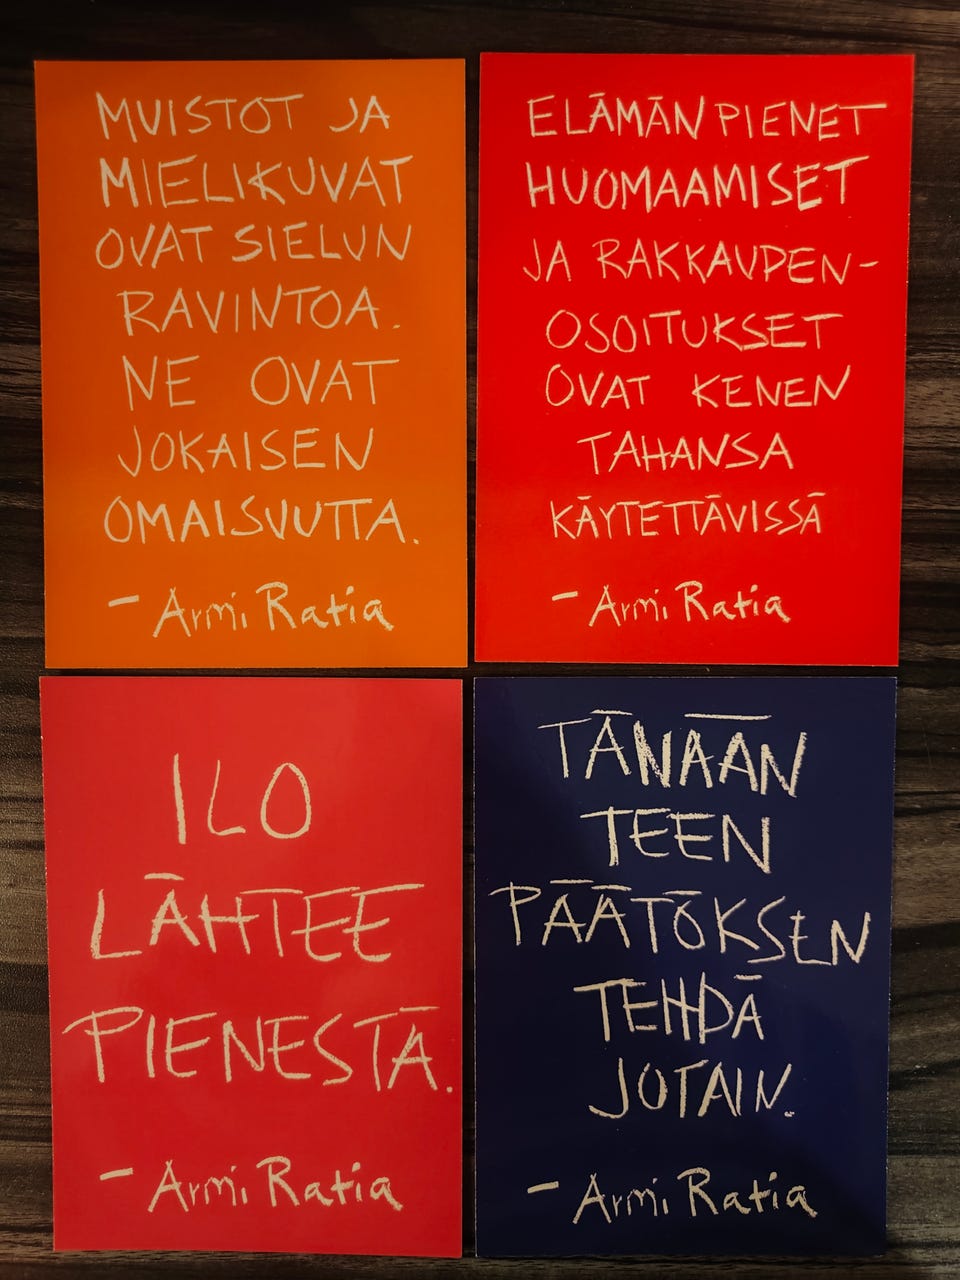 MUISTOT JA
MIELIKUVAT
OVAT SIELUN
RAVINTOA.
NE OVAT
JOKAISEN
OMAISUUTTA.
- Armi Ratia
ELĀMĀN PIENET
HUOMAAMISET
JA RAKKAUDEN-
OSOITUKSET
OVAT KENEN
TAHANSA
KĀYTETTĀVISSĀ
- Armi Ratia
ILO
LĀHTEE
PIENESTĀ.
- Armi Ratia
TĀNĀĀN
TEEN
PĀĀTŌKSEN
TEHDĀ
JOTAIN.
- Armi Ratia